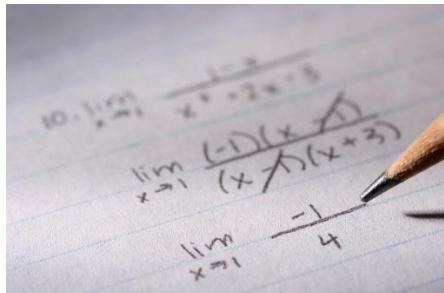 10. lim x→1 1-x / x² + 2x - 3
lim x→1 (-1)(x-1) / (x-1)(x+3)
lim x→1 -1 / 4